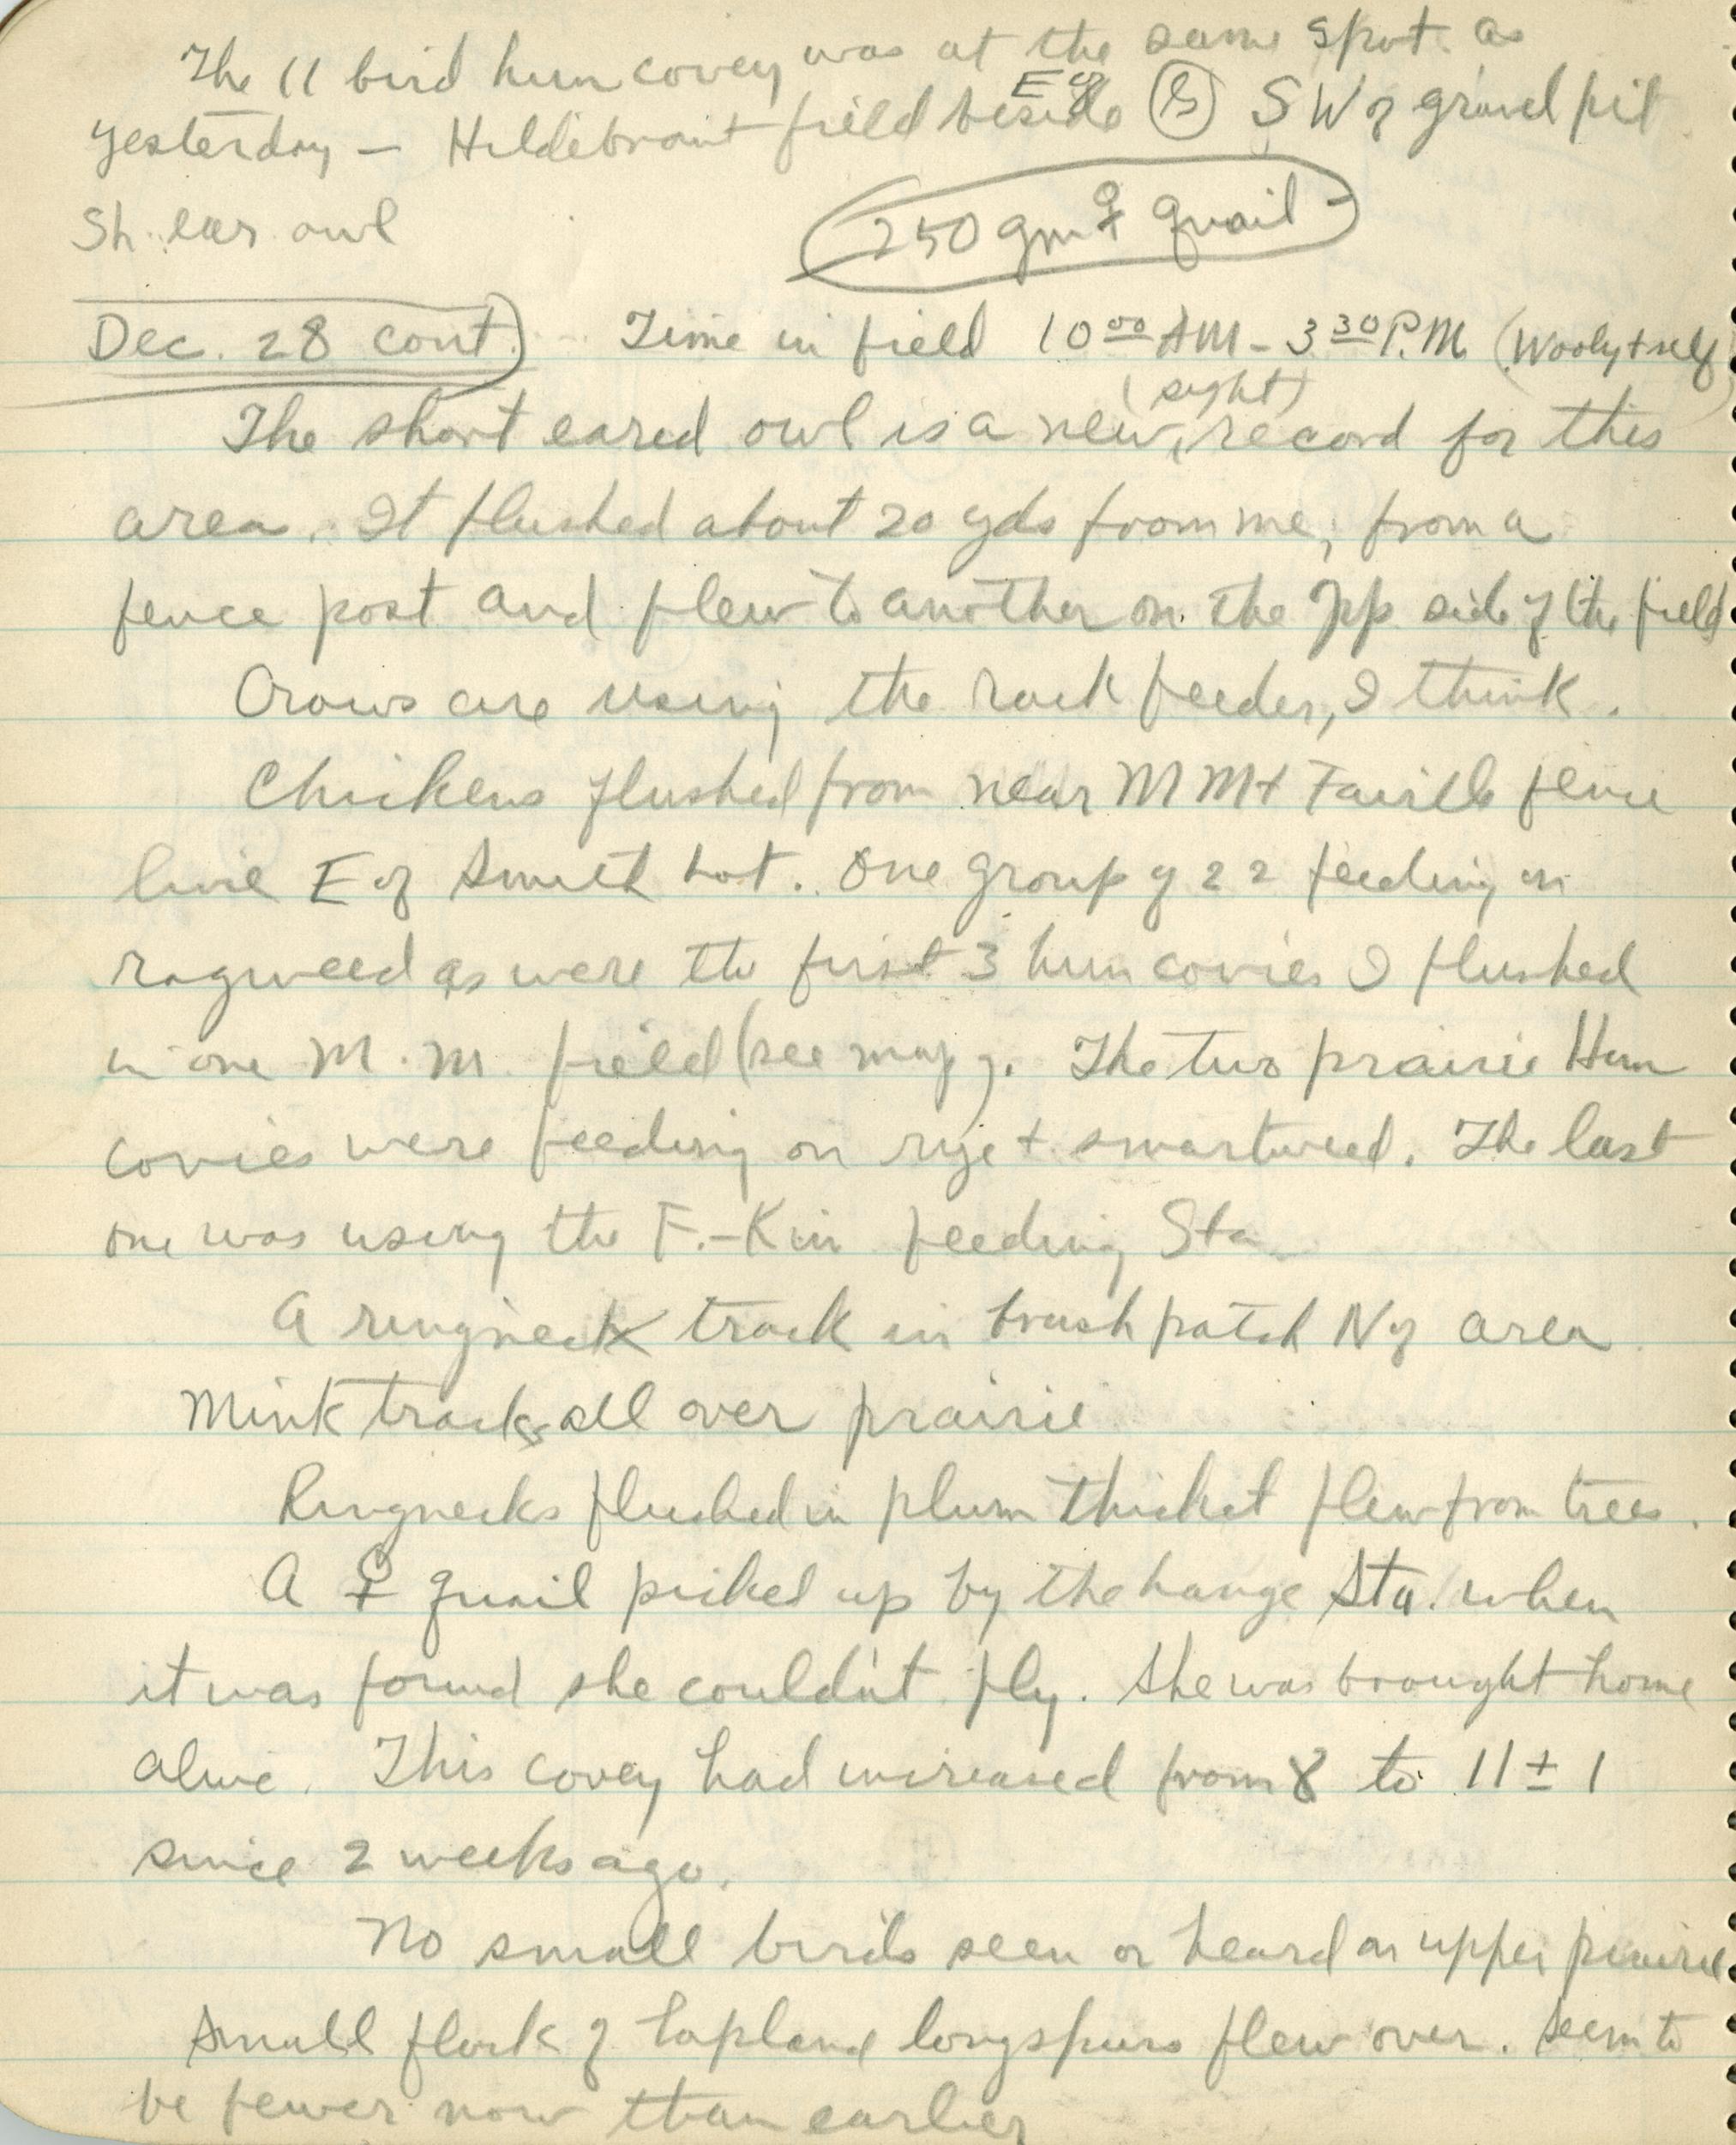 The 11 bird hun covey was at the same spot as
yesterday — Hildebrant field beside E of (S) SW of gravel pit
Sh. ear owl
250 gm ♀ quail
Dec. 28 cont. Time in field 10 00 AM - 3 30 P.M. (Wooly + self)
The short eared owl is a new (sight) record for this
area. It flushed about 20 yds from me, from a
fence post and flew to another on the opp side of the field
Crows are using the rack feeder, I think.
Chickens flushed from near M M + Faville fence
line E of Smith hot. One group of 22 feeding on
ragweed as were the first 3 hun covies I flushed
in one M. M. field (see map). The two prairie Hun
covies were feeding on rye + smartweed. The last
one was using the F.-Kin feeding Sta.
A ringneck track in brush patch N of area
Mink tracks all over prairie
Ringnecks flushed in plum thicket flew from trees.
A ♀ quail picked up by the hange Sta. when
it was found she couldn't fly. She was brought home
alive. This covey had increased from 8 to 11 ± 1
since 2 weeks ago.
No small birds seen or heard on upper prairie
Small flock of Lapland longspurs flew over. Seem to
be fewer now than earlier